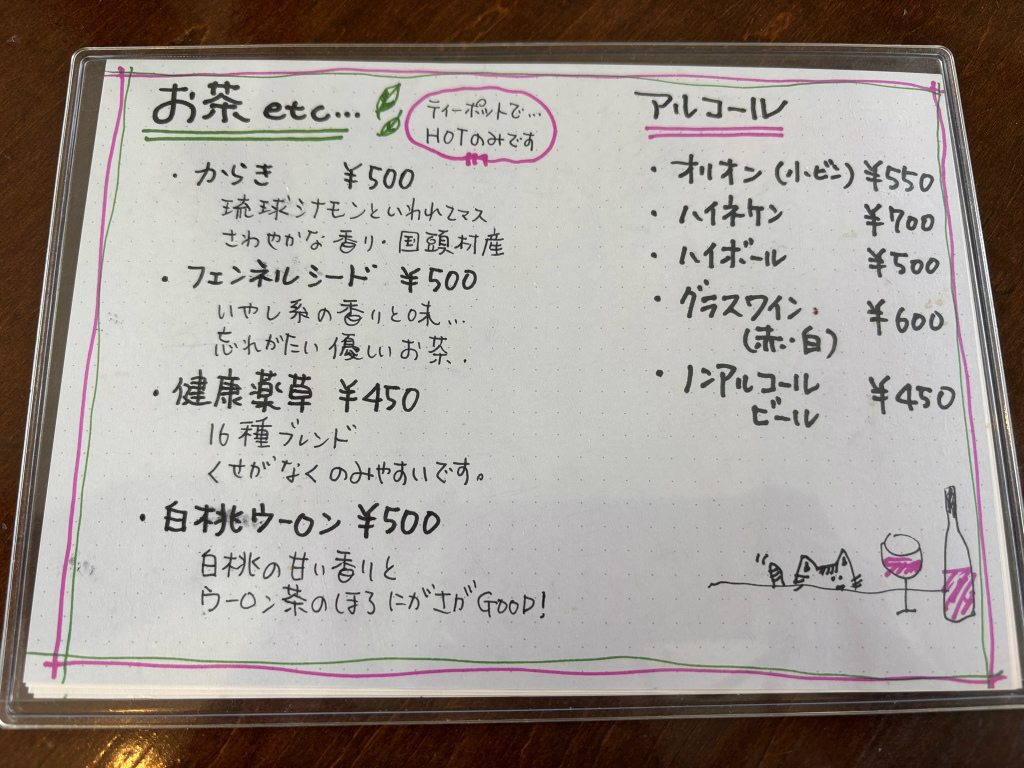 お茶 etc...
ティーポットで...
HOTのみです
・からき ¥500
琉球シナモンといわれてマス
さわやかな香り・国頭村産
・フェンネルシード ¥500
いやし系の香りと味...
忘れがたい優しいお茶.
・健康薬草 ¥450
16種ブレンド
くせがなくのみやすいです。
・白桃ウーロン ¥500
白桃の甘い香りと
ウーロン茶のほろにがさがGOOD!
アルコール
・オリオン(小ビン) ¥550
・ハイネケン ¥700
・ハイボール ¥500
・グラスワイン ¥600
(赤・白)
・ノンアルコール ¥450
ビール